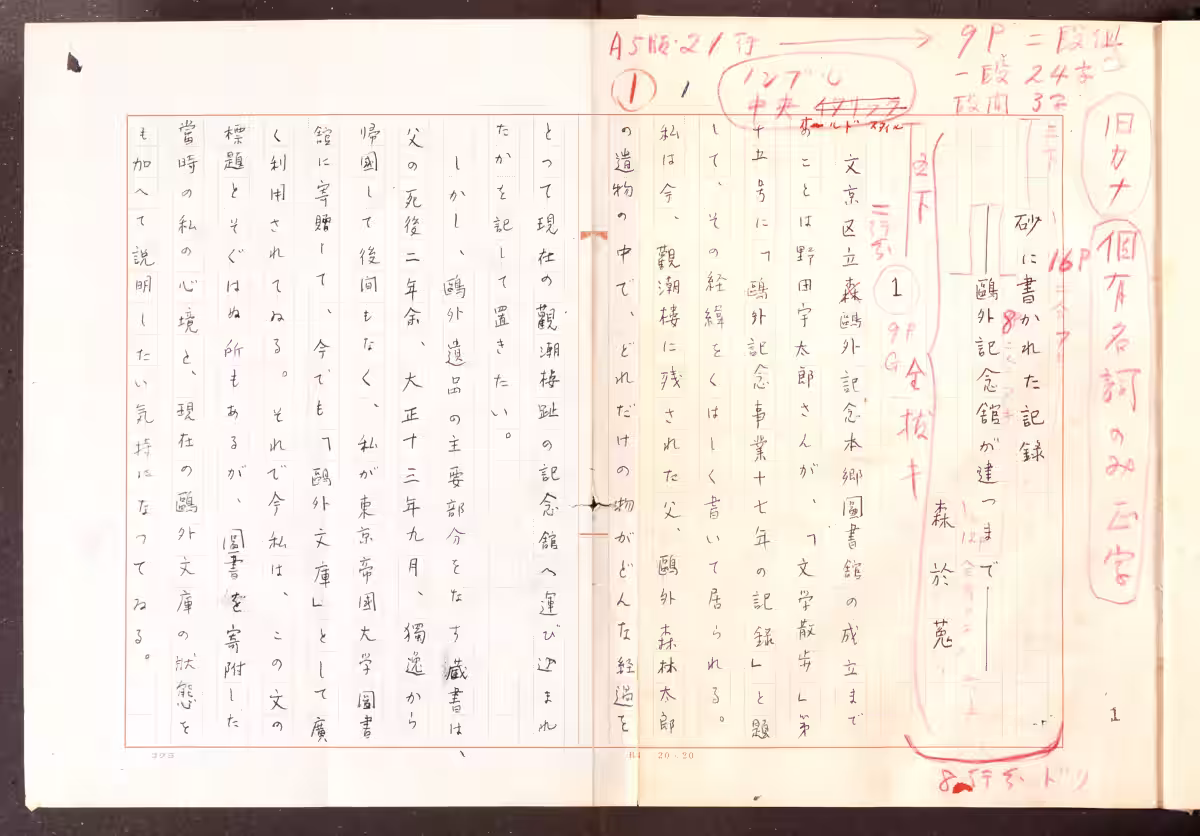 A5版・21行 → 9P 二段組
一段 24字
段間 3字
ノンブル
中央
オールドスタイル
① 1
旧カナ
個有名詞のみ正字
砂に書かれた記録
16P
――鷗外記念舘が建つまで――
8
森於菟
全抜キ
二行
1
9P
G
文京区立森鷗外記念本郷圖書舘の成立まで
のことは野田宇太郎さんが、「文学散歩」第
十五号に「鷗外記念事業十七年の記録」と題
して、その経緯をくはしく書いて居られる。
私は今、觀潮楼に残された父、鷗外森林太郎
の遺物の中で、どれだけの物がどんな経過を
とつて現在の觀潮楼趾の記念舘へ運び込まれ
たかを記して置きたい。
しかし、鷗外遺品の主要部分をなす蔵書は、
父の死後二年余、大正十三年九月、獨逸から
帰國して後間もなく、私が東京帝國大学圖書
舘に寄贈して、今でも「鷗外文庫」として廣
く利用されてゐる。それで今私は、この文の
標題とそぐはぬ所もあるが、圖書を寄附した
當時の私の心境と、現在の鷗外文庫の狀態を
も加へて説明したい気持になつてゐる。
8行分ドリ
1
B4 20×20